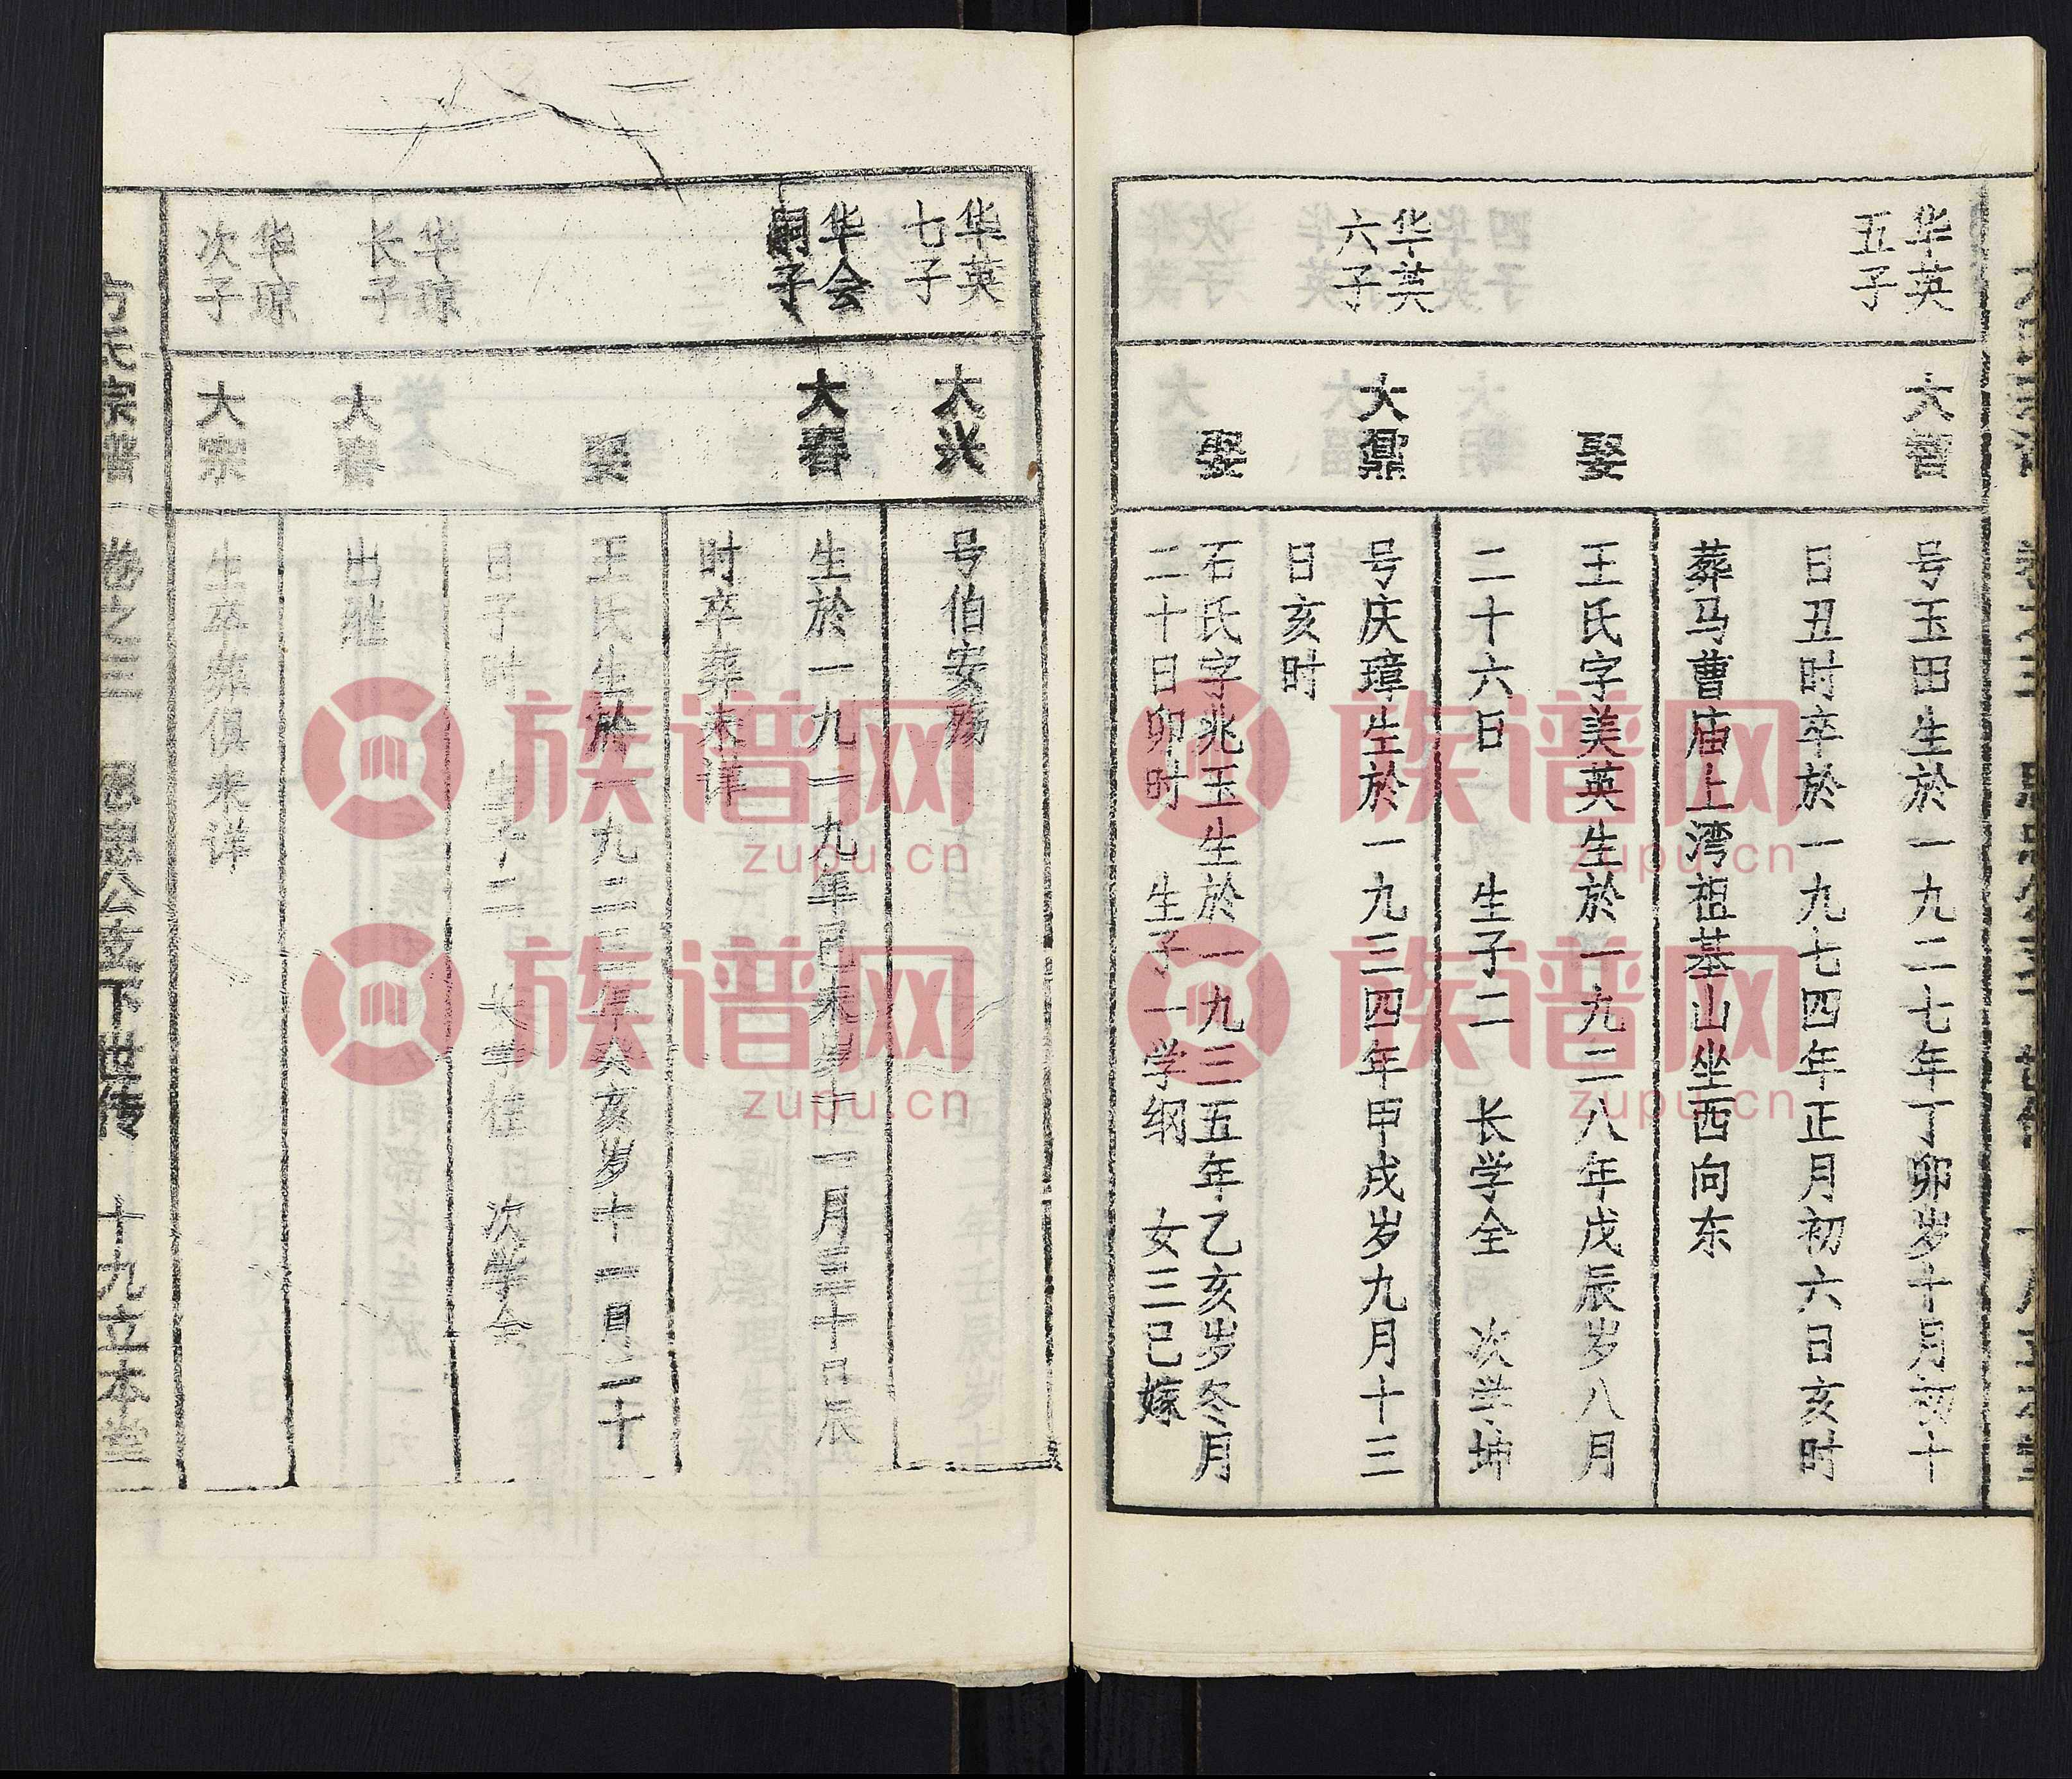 华英
五子
大普
号玉田生於一九二七年丁卯岁十月初十
日丑时卒於一九七四年正月初六日亥时
葬马曹庙上湾祖基山坐西向东
娶
王氏字美英生於一九二八年戊辰岁八月
二十六日 生子二 长学全 次学坤
华英
六子
大鼎
号庆璋生於一九三四年甲戌岁九月十三
日亥时
娶
石氏字兆玉生於一九三五年乙亥岁冬月
二十日卯时 生子一学纲 女三已嫁
华英
七子
大兴
号伯安殇
华会
嗣子
大春
生於一九一九年己未岁十一月三十日辰
时卒葬未详
娶
王氏生於一九二三年癸亥岁十一月二十
日子时 生子二 长学桂 次学全
华琼
长子
大春
出继
华琼
次子
大宗
生卒葬俱未详
氏宗谱 卷之三 思忠公支下世传 十九立本堂
族谱网
zupu.cn
族谱网
zupu.cn
族谱网
zupu.cn
族谱网
zupu.cn